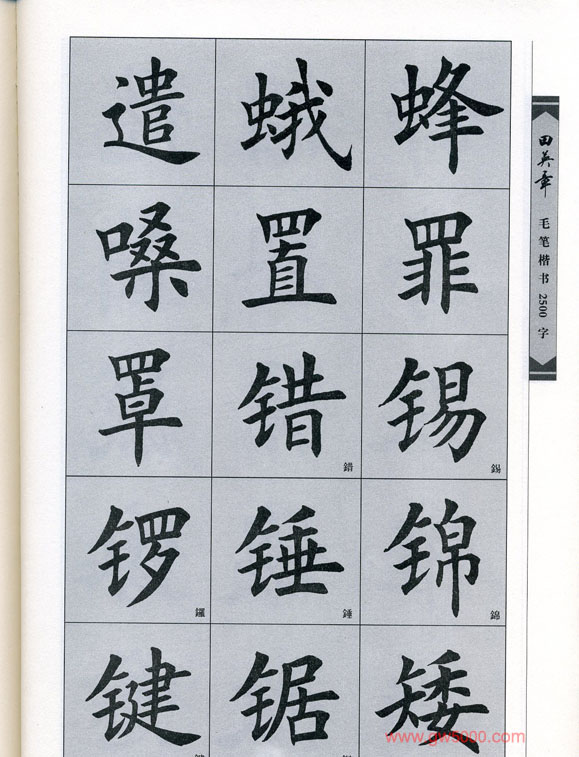 遣 蛾 蜂
嗓 置 罪
罩 错 锡
錯 錫
锣 锤 锦
鑼 錘 錦
键 锯 矮
田英章 毛笔楷书2500字
www.gw5000.com